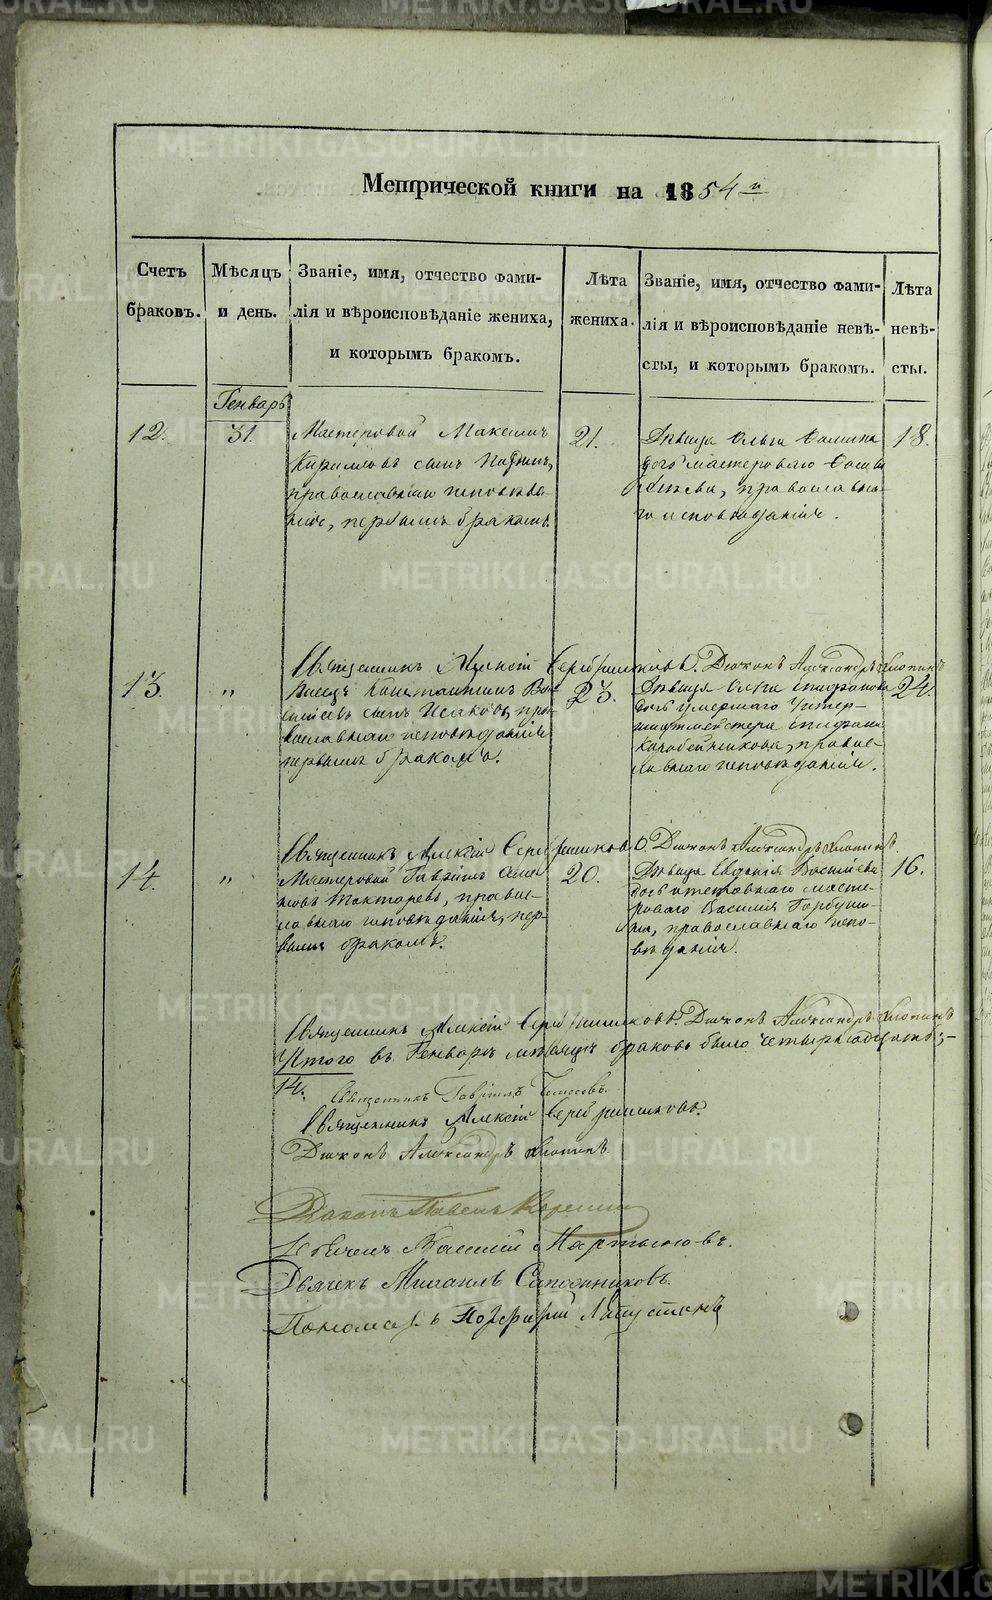 Метрической книги на 1854й
Счетъ браковъ.
Мѣсяцъ и день.
Званіе, имя, отчество фами-
лія и вѣроисповѣданіе жениха,
и которымъ бракомъ.
Лѣта жениха.
Званіе, имя, отчество фами-
лія и вѣроисповѣданіе невѣ-
сты, и которымъ бракомъ.
Лѣта невѣ-
сты.
Генварь
12.
31.
Мастеровой Максимъ
Кирилловъ сынъ
православнаго исповѣда-
нія, первымъ бракомъ
21.
Дѣвица Ольга Фомина
дочь мастероваго Фомы
православна-
го исповѣданія.
18.
Священникъ Алексій Серебренниковъ. Діаконъ Александръ Хлопинъ
13.
"
Писецъ Константинъ Ва-
сильевъ сынъ Исаковъ, пра-
вославнаго исповѣданія
первымъ бракомъ.
23.
Дѣвица Ольга Епифанова
дочь умершаго Унтер-
шихтмейстера Епифана
Коробейникова, правос-
лавнаго исповѣданія.
24.
Священникъ Алексій Серебренниковъ. Діаконъ Александръ Хлопинъ.
14.
"
Мастеровой Гавріилъ
Токтаревъ, правос-
лавнаго исповѣданія, пер-
вымъ бракомъ.
20.
Дѣвица Евдокія Васильева
дочь отставнаго масте-
роваго Василія Горбуно-
ва, православнаго испо-
вѣданія.
16.
Священникъ Алексій Серебренниковъ. Діаконъ Александръ Хлопинъ
Итого въ Генварѣ мѣсяцѣ браковъ было четырнадцать;-
14.
Священникъ Гавріилъ
Священникъ Алексій Серебренниковъ.
Діаконъ Александръ Хлопинъ
Діаконъ Павелъ
Василій Мартыновъ.
Дьячекъ Михаилъ Сапожниковъ.
Пономарь Порфирій Лапустинъ
METRIKI.GASO-URAL.RU